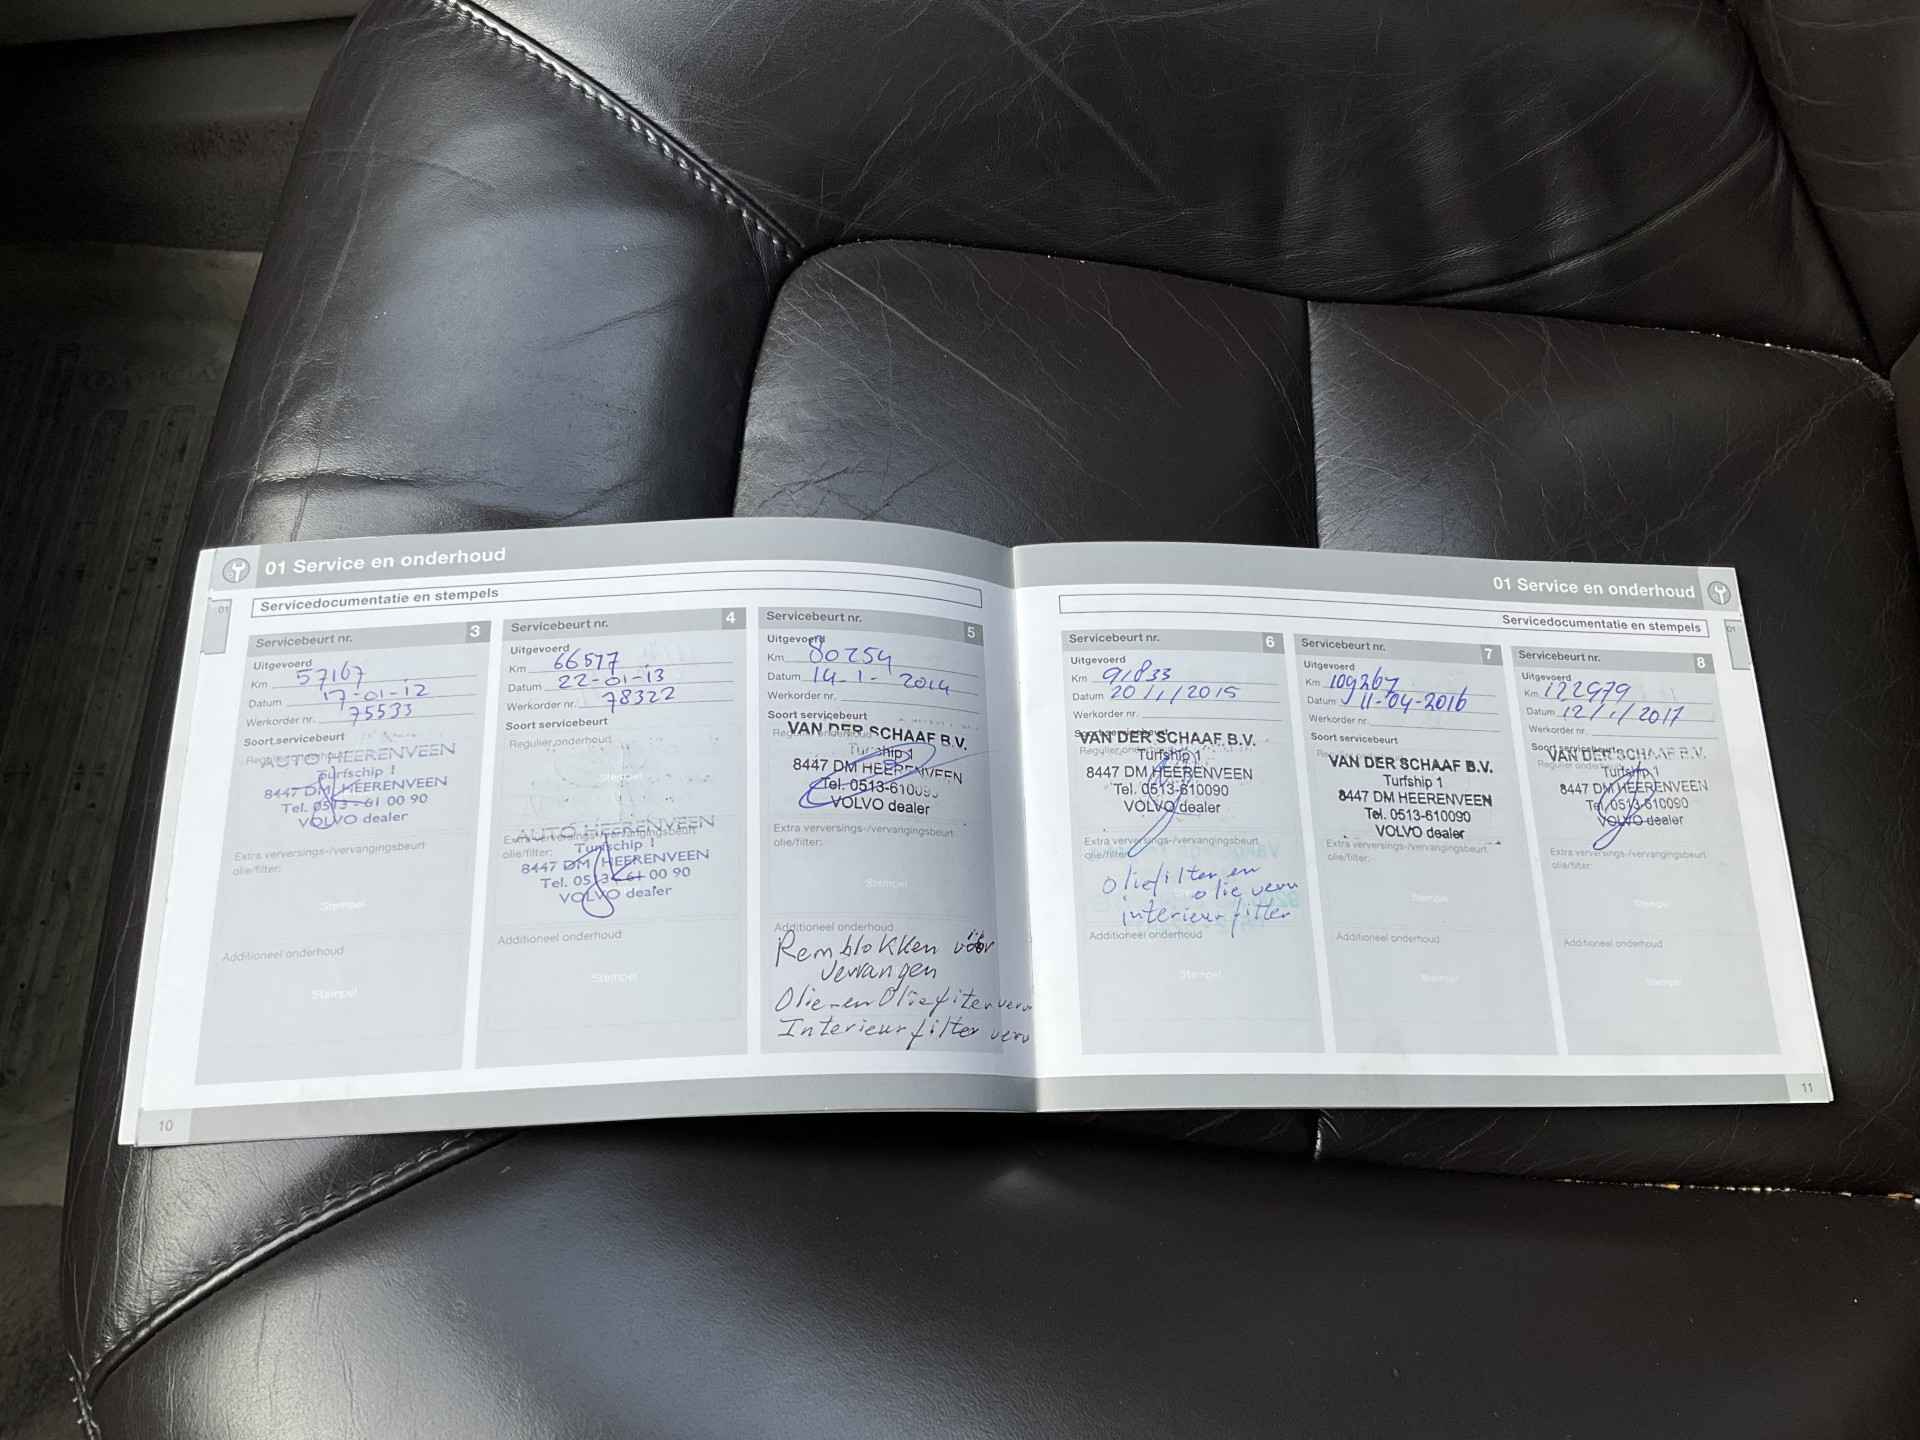 01 Service en onderhoud
01
Servicedocumentatie en stempels
Servicebeurt nr. 3
Uitgevoerd
Km 57167
Datum 17-01-12
Werkorder nr. 75533
Soort servicebeurt
Regulier onderhoud
AUTO HEERENVEEN
Turfschip 1
8447 DM HEERENVEEN
Tel. 0513 - 61 00 90
VOLVO dealer
Extra verversings-/vervangingsbeurt
olie/filter:
Stempel
Additioneel onderhoud
Stempel
Servicebeurt nr. 4
Uitgevoerd
Km 66577
Datum 22-01-13
Werkorder nr. 78322
Soort servicebeurt
Regulier onderhoud
Stempel
AUTO HEERENVEEN
Extra verversings-/vervangingsbeurt
Turfschip 1
olie/filter:
8447 DM HEERENVEEN
Tel. 0513-61 00 90
VOLVO dealer
Additioneel onderhoud
Stempel
Servicebeurt nr. 5
Uitgevoerd
Km 80254
Datum 14-1-2014
Werkorder nr.
Soort servicebeurt
VAN DER SCHAAF B.V.
Regulier onderhoud
Turfship 1
8447 DM HEERENVEEN
Tel. 0513-610090
VOLVO dealer
Extra verversings-/vervangingsbeurt
olie/filter:
Stempel
Additioneel onderhoud
Remblokken vóór
vervangen
Olie-en Oliefiter verv
Interieurfilter verv
10
01 Service en onderhoud
01
Servicedocumentatie en stempels
Servicebeurt nr. 6
Uitgevoerd
Km 91833
Datum 20/1/2015
Werkorder nr.
VAN DER SCHAAF B.V.
Regulier onderhoud
Turfship 1
8447 DM HEERENVEEN
Tel. 0513-610090
VOLVO dealer
Extra verversings-/vervangingsbeurt
olie/filter:
Oliefilter en
olie verv
interieurfilter
Additioneel onderhoud
Stempel
Servicebeurt nr. 7
Uitgevoerd
Km 109267
Datum 11-04-2016
Werkorder nr.
Soort servicebeurt
Regulier onderhoud
VAN DER SCHAAF B.V.
Turfship 1
8447 DM HEERENVEEN
Tel. 0513-610090
VOLVO dealer
Extra verversings-/vervangingsbeurt
olie/filter:
Stempel
Additioneel onderhoud
Stempel
Servicebeurt nr. 8
Uitgevoerd
Km 122979
Datum 12/1/2017
Werkorder nr.
Soort servicebeurt
VAN DER SCHAAF B.V.
Regulier onderhoud
Turfship 1
8447 DM HEERENVEEN
Tel. 0513-610090
VOLVO dealer
Extra verversings-/vervangingsbeurt
olie/filter:
Stempel
Additioneel onderhoud
Stempel
11